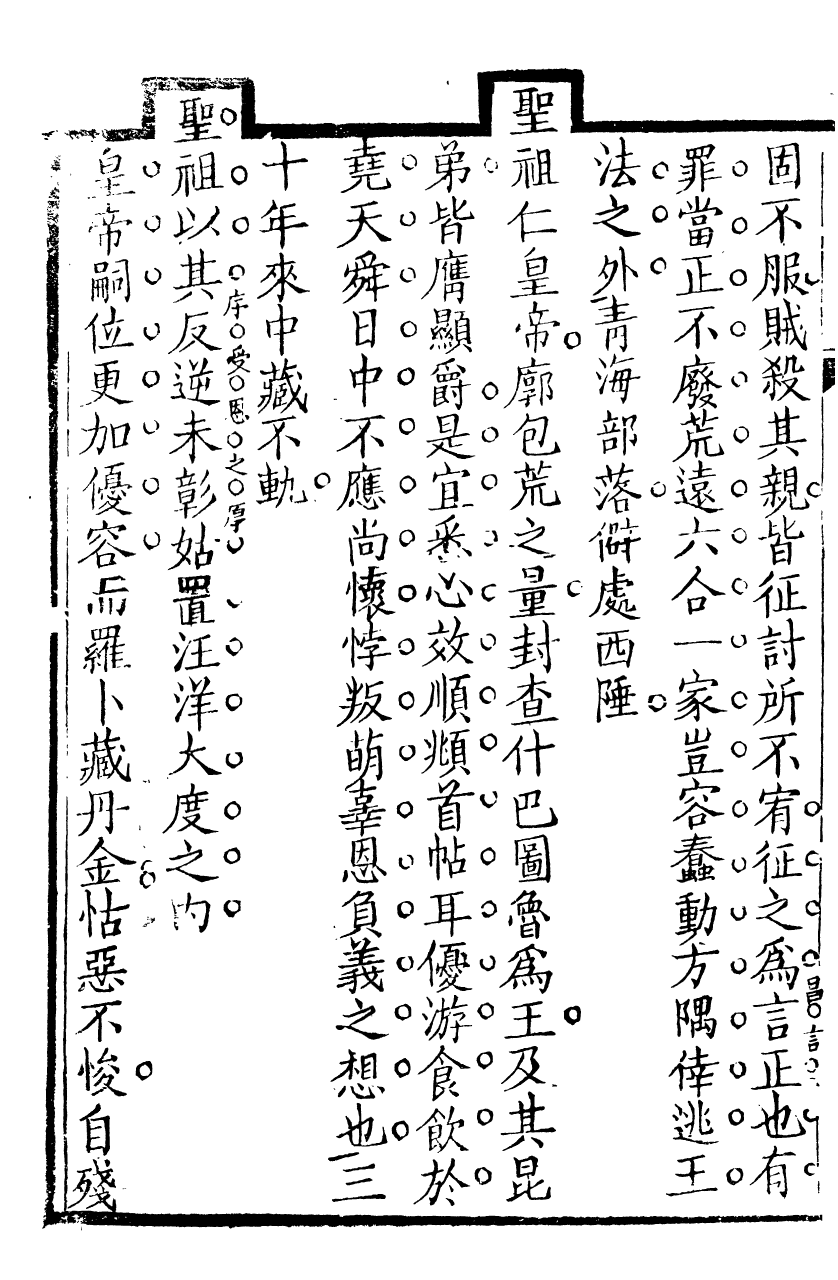 固不服賊殺其親皆征討所不宥征之爲言正也有
昌言
罪當正不廢荒遠六合一家豈容蠢動方隅倖逃王
法之外青海部落僻處西陲
聖祖仁皇帝廓包荒之量封查什巴圖魯爲王及其昆
弟皆膺顯爵是宜悉心效順頫首帖耳優游食飲於
堯天舜日中不應尚懷悖叛萌辜恩負義之想也三
十年來中藏不軌
序受恩之厚
聖祖以其反逆未彰姑置汪洋大度之内
皇帝嗣位更加優容而羅卜藏丹金怙惡不悛自殘